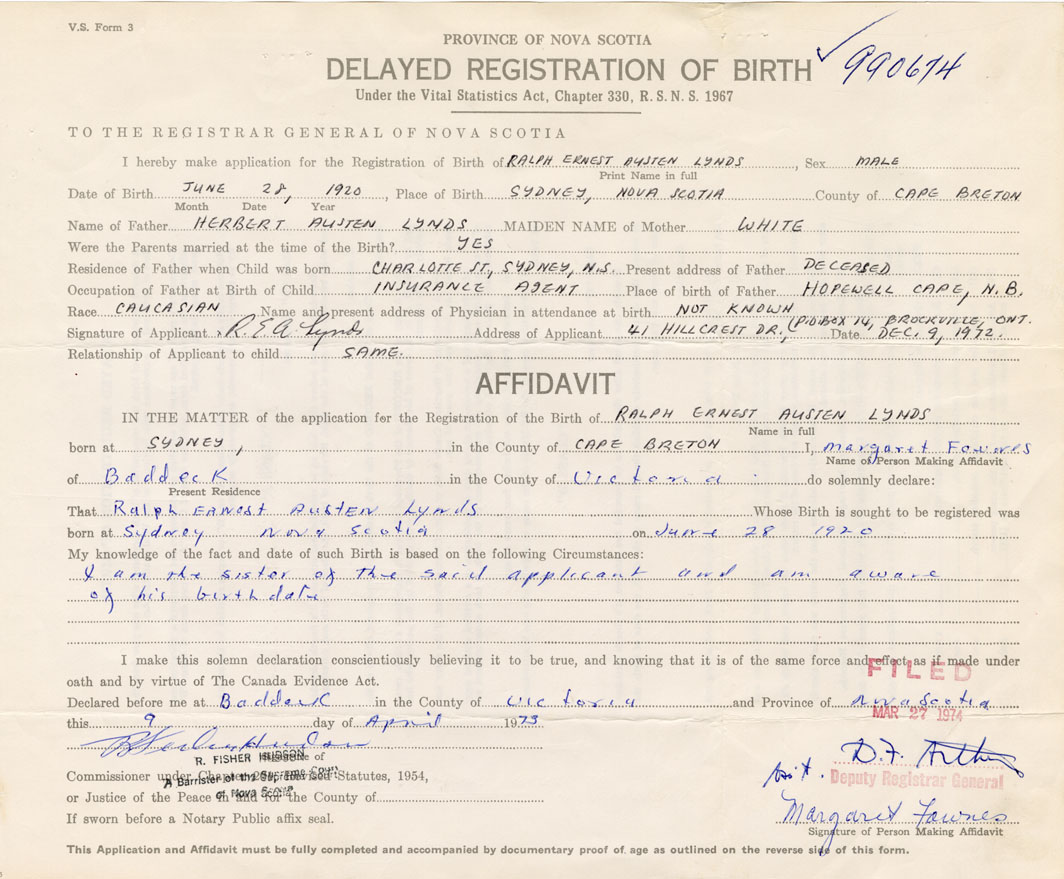 V.S. Form 3
990674
PROVINCE OF NOVA SCOTIA
DELAYED REGISTRATION OF BIRTH
Under the Vital Statistics Act, Chapter 330, R.S.N.S. 1967
TO THE REGISTRAR GENERAL OF NOVA SCOTIA
I hereby make application for the Registration of Birth of RALPH ERNEST AUSTEN LYNDS, Sex MALE
Print Name in full
Date of Birth JUNE 28, 1920, Place of Birth SYDNEY, NOVA SCOTIA County of CAPE BRETON
Month Date Year
Name of Father HERBERT AUSTEN LYNDS MAIDEN NAME of Mother WHITE
Were the Parents married at the time of the Birth? YES
Residence of Father when Child was born CHARLOTTE ST., SYDNEY, N.S. Present address of Father DECEASED
Occupation of Father at Birth of Child INSURANCE AGENT Place of birth of Father HOPEWELL CAPE, N.B.
Race CAUCASIAN Name and present address of Physician in attendance at birth NOT KNOWN
(P.O. BOX 14, BROCKVILLE, ONT.
Signature of Applicant R.E.A. Lynds Address of Applicant 41 HILLCREST DR, Date DEC. 9, 1972.
Relationship of Applicant to child SAME.
AFFIDAVIT
IN THE MATTER of the application for the Registration of the Birth of RALPH ERNEST AUSTEN LYNDS
Name in full
born at SYDNEY, in the County of CAPE BRETON I, Margaret Fownes
Name of Person Making Affidavit
of Baddeck in the County of Victoria do solemnly declare:
Present Residence
That Ralph ERNEST AUSTEN LYNDS Whose Birth is sought to be registered was
born at Sydney Nova Scotia on June 28 1920
My knowledge of the fact and date of such Birth is based on the following Circumstances:
I am the sister of the said applicant and am aware
of his birthdate
I make this solemn declaration conscientiously believing it to be true, and knowing that it is of the same force and effect as if made under
oath and by virtue of The Canada Evidence Act.
FILED
Declared before me at Baddeck in the County of Victoria and Province of Nova Scotia
MAR 27 1974
this 9 day of April 1973
R. FISHER HUDSON
A Barrister of the Supreme Court
of Nova Scotia
Commissioner under Chapter Revised Statutes, 1954,
or Justice of the Peace in and for the County of
If sworn before a Notary Public affix seal.
D.F. Arthur
Deputy Registrar General
Margaret Fownes
Signature of Person Making Affidavit
This Application and Affidavit must be fully completed and accompanied by documentary proof of age as outlined on the reverse side of this form.